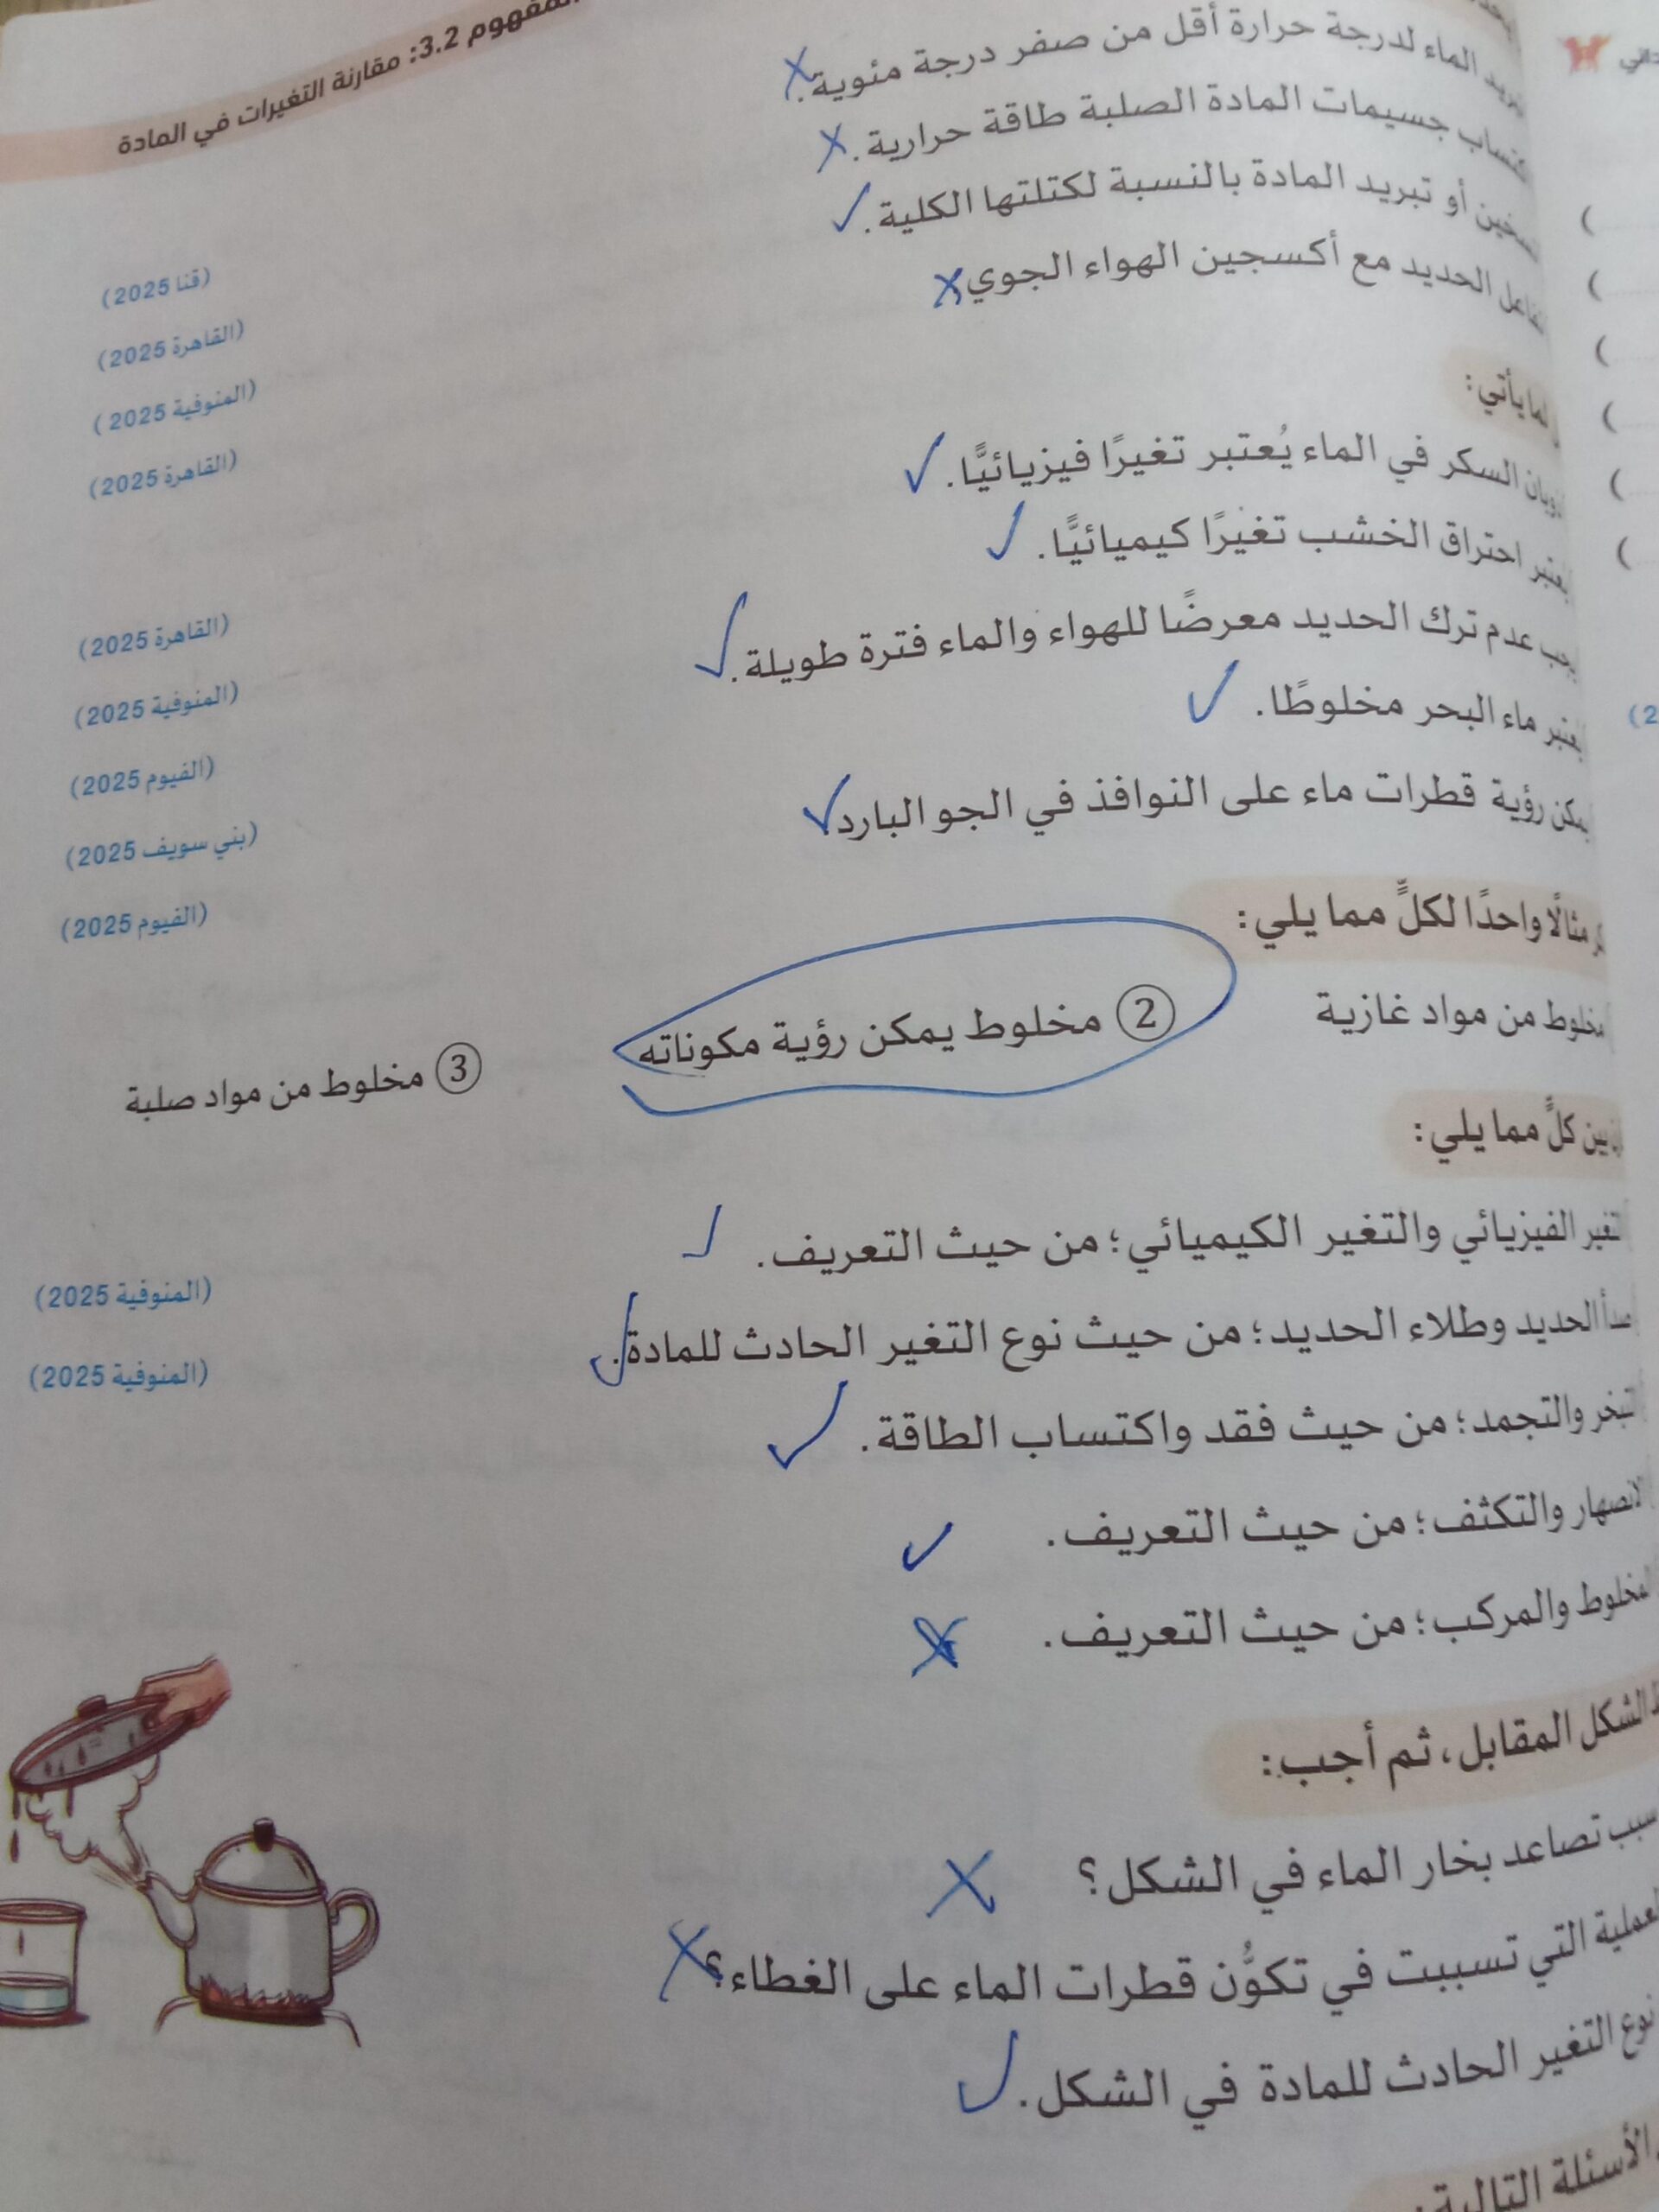 المفهوم 3.2: مقارنة التغيرات في المادة
تبريد الماء لدرجة حرارة أقل من صفر درجة مئوية.
اكتساب جسيمات المادة الصلبة طاقة حرارية.
تسخين أو تبريد المادة بالنسبة لكتلتها الكلية.
(قنا 2025)
تفاعل الحديد مع أكسجين الهواء الجوي
(القاهرة 2025)
(المنوفية 2025)
(القاهرة 2025)
لما يأتي:
ذوبان السكر في الماء يُعتبر تغيرًا فيزيائيًّا.
يعتبر احتراق الخشب تغيرًا كيميائيًّا.
(القاهرة 2025)
يجب عدم ترك الحديد معرضًا للهواء والماء فترة طويلة.
(المنوفية 2025)
يعتبر ماء البحر مخلوطًا.
(الفيوم 2025)
يمكن رؤية قطرات ماء على النوافذ في الجو البارد.
(بني سويف 2025)
(الفيوم 2025)
مثالًا واحدًا لكلٍّ مما يلي:
مخلوط من مواد غازية
② مخلوط يمكن رؤية مكوناته
③ مخلوط من مواد صلبة
بين كلٍّ مما يلي:
التغير الفيزيائي والتغير الكيميائي؛ من حيث التعريف.
(المنوفية 2025)
صدأ الحديد وطلاء الحديد؛ من حيث نوع التغير الحادث للمادة.
(المنوفية 2025)
التبخر والتجمد؛ من حيث فقد واكتساب الطاقة.
الانصهار والتكثف؛ من حيث التعريف.
المخلوط والمركب؛ من حيث التعريف.
الشكل المقابل، ثم أجب:
سبب تصاعد بخار الماء في الشكل؟
العملية التي تسببت في تكوُّن قطرات الماء على الغطاء؟
نوع التغير الحادث للمادة في الشكل.
الأسئلة التالية: